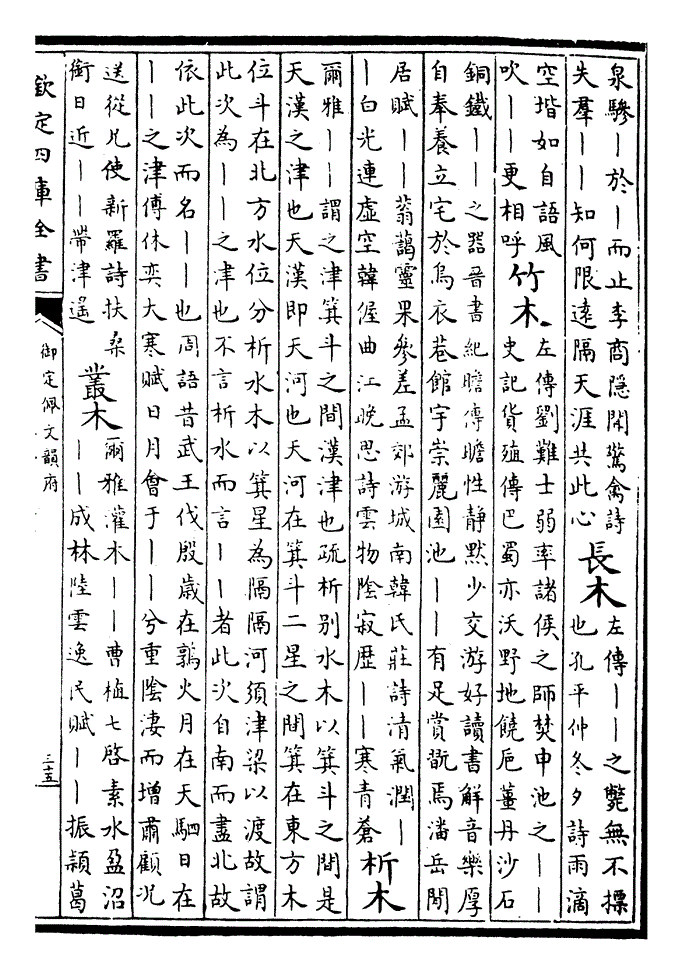 泉驂｜於｜而止李商隱閑驚禽詩
失羣｜｜知何限遠隔天涯共此心
長木
左傳｜｜之斃無不摽
也孔平仲冬夕詩雨滴
空堦如自語風
吹｜｜更相呼
竹木
左傳劉難士弱率諸侯之師焚申池之｜｜
史記貨殖傳巴蜀亦沃野地饒巵薑丹沙石
銅鐵｜｜之器晉書紀瞻傳瞻性静默少交游好讀書解音樂厚
自奉養立宅於烏衣巷館宇崇麗園池｜｜有足賞翫焉潘岳閒
居賦｜｜蓊藹靈果參差孟郊游城南韓氏莊詩清氣潤｜
｜白光連虛空韓偓曲江晚思詩雲物陰寂歴｜｜寒青蒼
析木
爾雅｜｜謂之津箕斗之間漢津也疏析別水木以箕斗之間是
天漢之津也天漢即天河也天河在箕斗二星之間箕在東方木
位斗在北方水位分析水木以箕星為隔隔河須津梁以渡故謂
此次為｜｜之津也不言析水而言｜｜者此次自南而盡北故
依此次而名｜｜也周語昔武王伐殷歲在鶉火月在天駟日在
｜｜之津傅休奕大寒賦日月會于｜｜兮重陰淒而增肅顧况
送從兄使新羅詩扶桑
銜日近｜｜帶津遥
叢木
爾雅灌木｜｜曹植七啓素水盈沼
｜｜成林陸雲逸民賦｜｜振頴葛
欽定四庫全書
御定佩文韻府
三十五